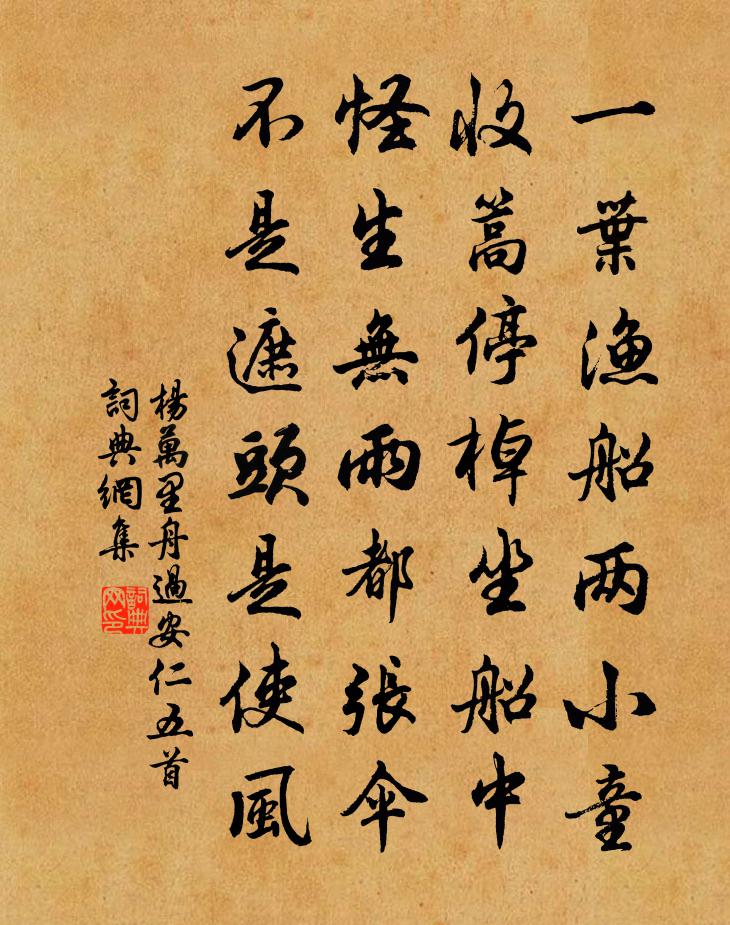 一葉漁船两小童
收篙停棹坐船中
怪生無雨都張伞
不是遮頭是使風
楊萬里舟過安仁五首
詞典網集
詞典網印